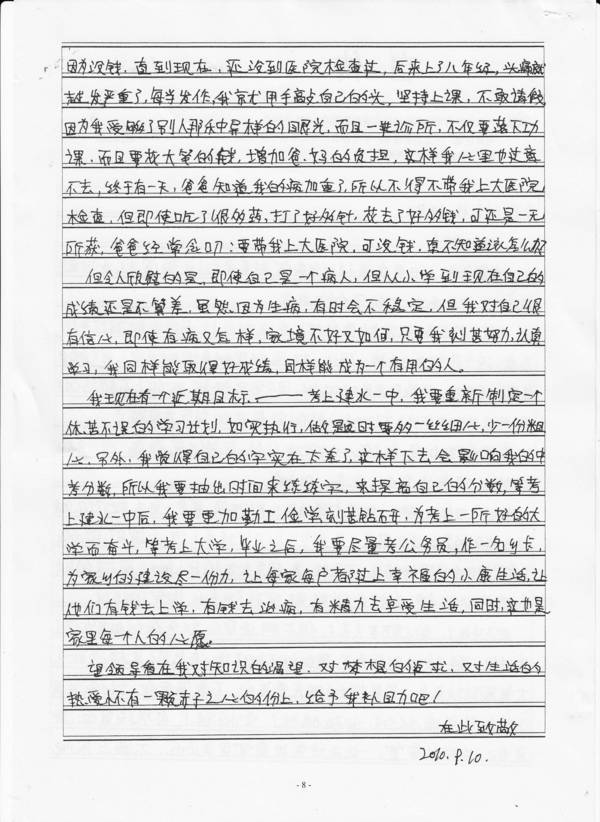 因为没钱，直到现在，还没到医院检查过，后来上了八年级，头痛就
越发严重了，每当发作，我就用手敲点自己的头，坚持上课，不敢请假
因为我受够了别人那种异样的目光，而且一进诊所，不仅要落下功
课，而且要花大笔的钱，增加爸、妈的负担，这样我心里也过意
不去，终于有一天，爸爸知道我的病加重了，所以不得不带我上大医院
检查，但即使吃了很多药，打了好多针，花去了好多钱，可还是一无
所获，爸爸经常念叨：要带我上大医院，可没钱，真不知道该怎么办
但令人欣慰的是，即使自己是一个病人，但从小学到现在自己的
成绩还是不算差，虽然，因为生病，有时会不稳定，但我对自己很
有信心，即使有病又怎样，家境不好又如何，只要我刻苦努力，认真
学习，我同样能取得好成绩，同样能成为一个有用的人。
我现在有个近期目标——考上建水一中，我要重新制定一个
休苦不误的学习计划，如实执行，做题时要多一丝细心，少一份粗
心，另外，我觉得自己的字实在太差了，这样下去会影响我的中
考分数，所以我要抽出时间来练练字，来提高自己的分数，等考
上建水一中后，我要更加勤工俭学刻苦钻研，为考上一所好的大
学而奋斗，等考上大学，毕业之后，我要尽量考公务员，作一名乡长，
为家乡的建设尽一份力，让每家每户都过上幸福的小康生活，让
他们有钱去上学，有钱去治病，有精力去享受生活，同时，这也是
家里每个人的心愿。
望领导看在我对知识的渴望，对梦想的追求，对生活的
热爱，怀有一颗赤子之心的份上，给予我默回力吧！
在此致敬
2010.9.10.
- 8 -